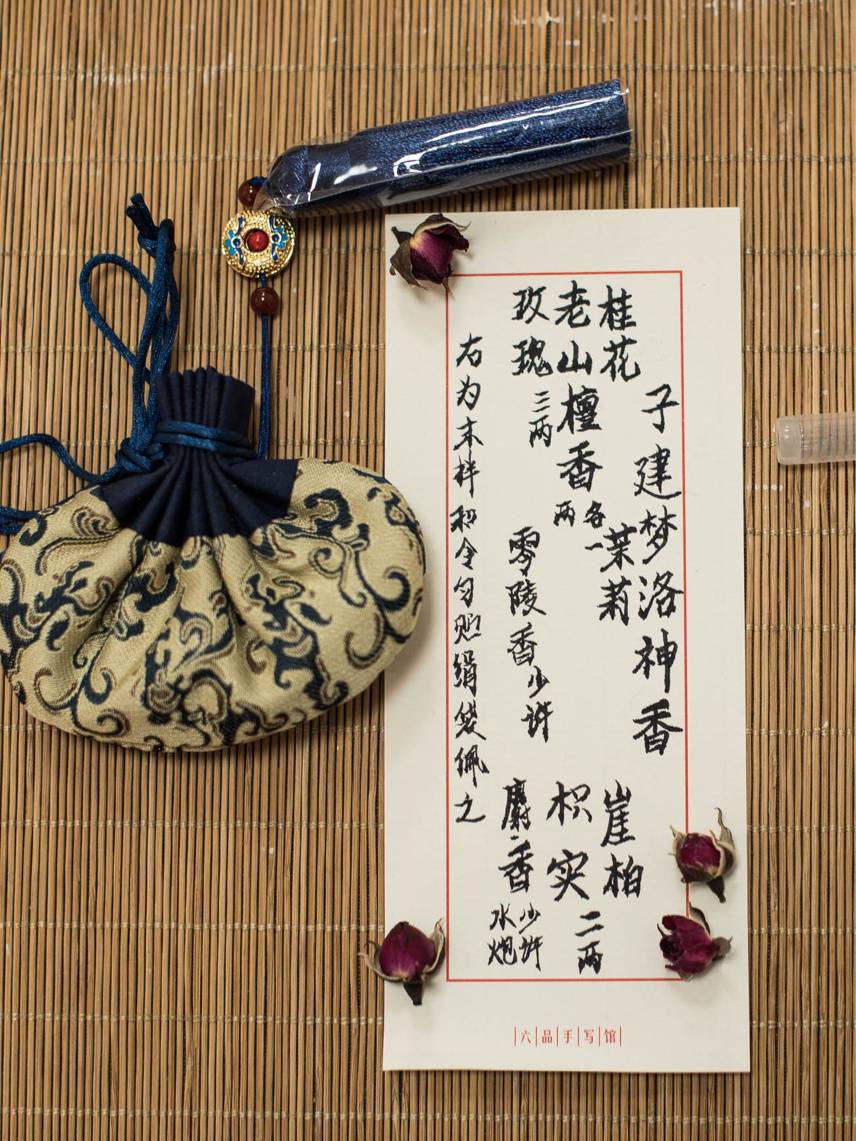 子建梦洛神香
桂花 茉莉 崖柏
老山檀香 各一两 枳实 二两
玫瑰 三两 零陵香少许 麝香 少许水炮
右为末拌和令匀照绢袋佩之
六品手写馆